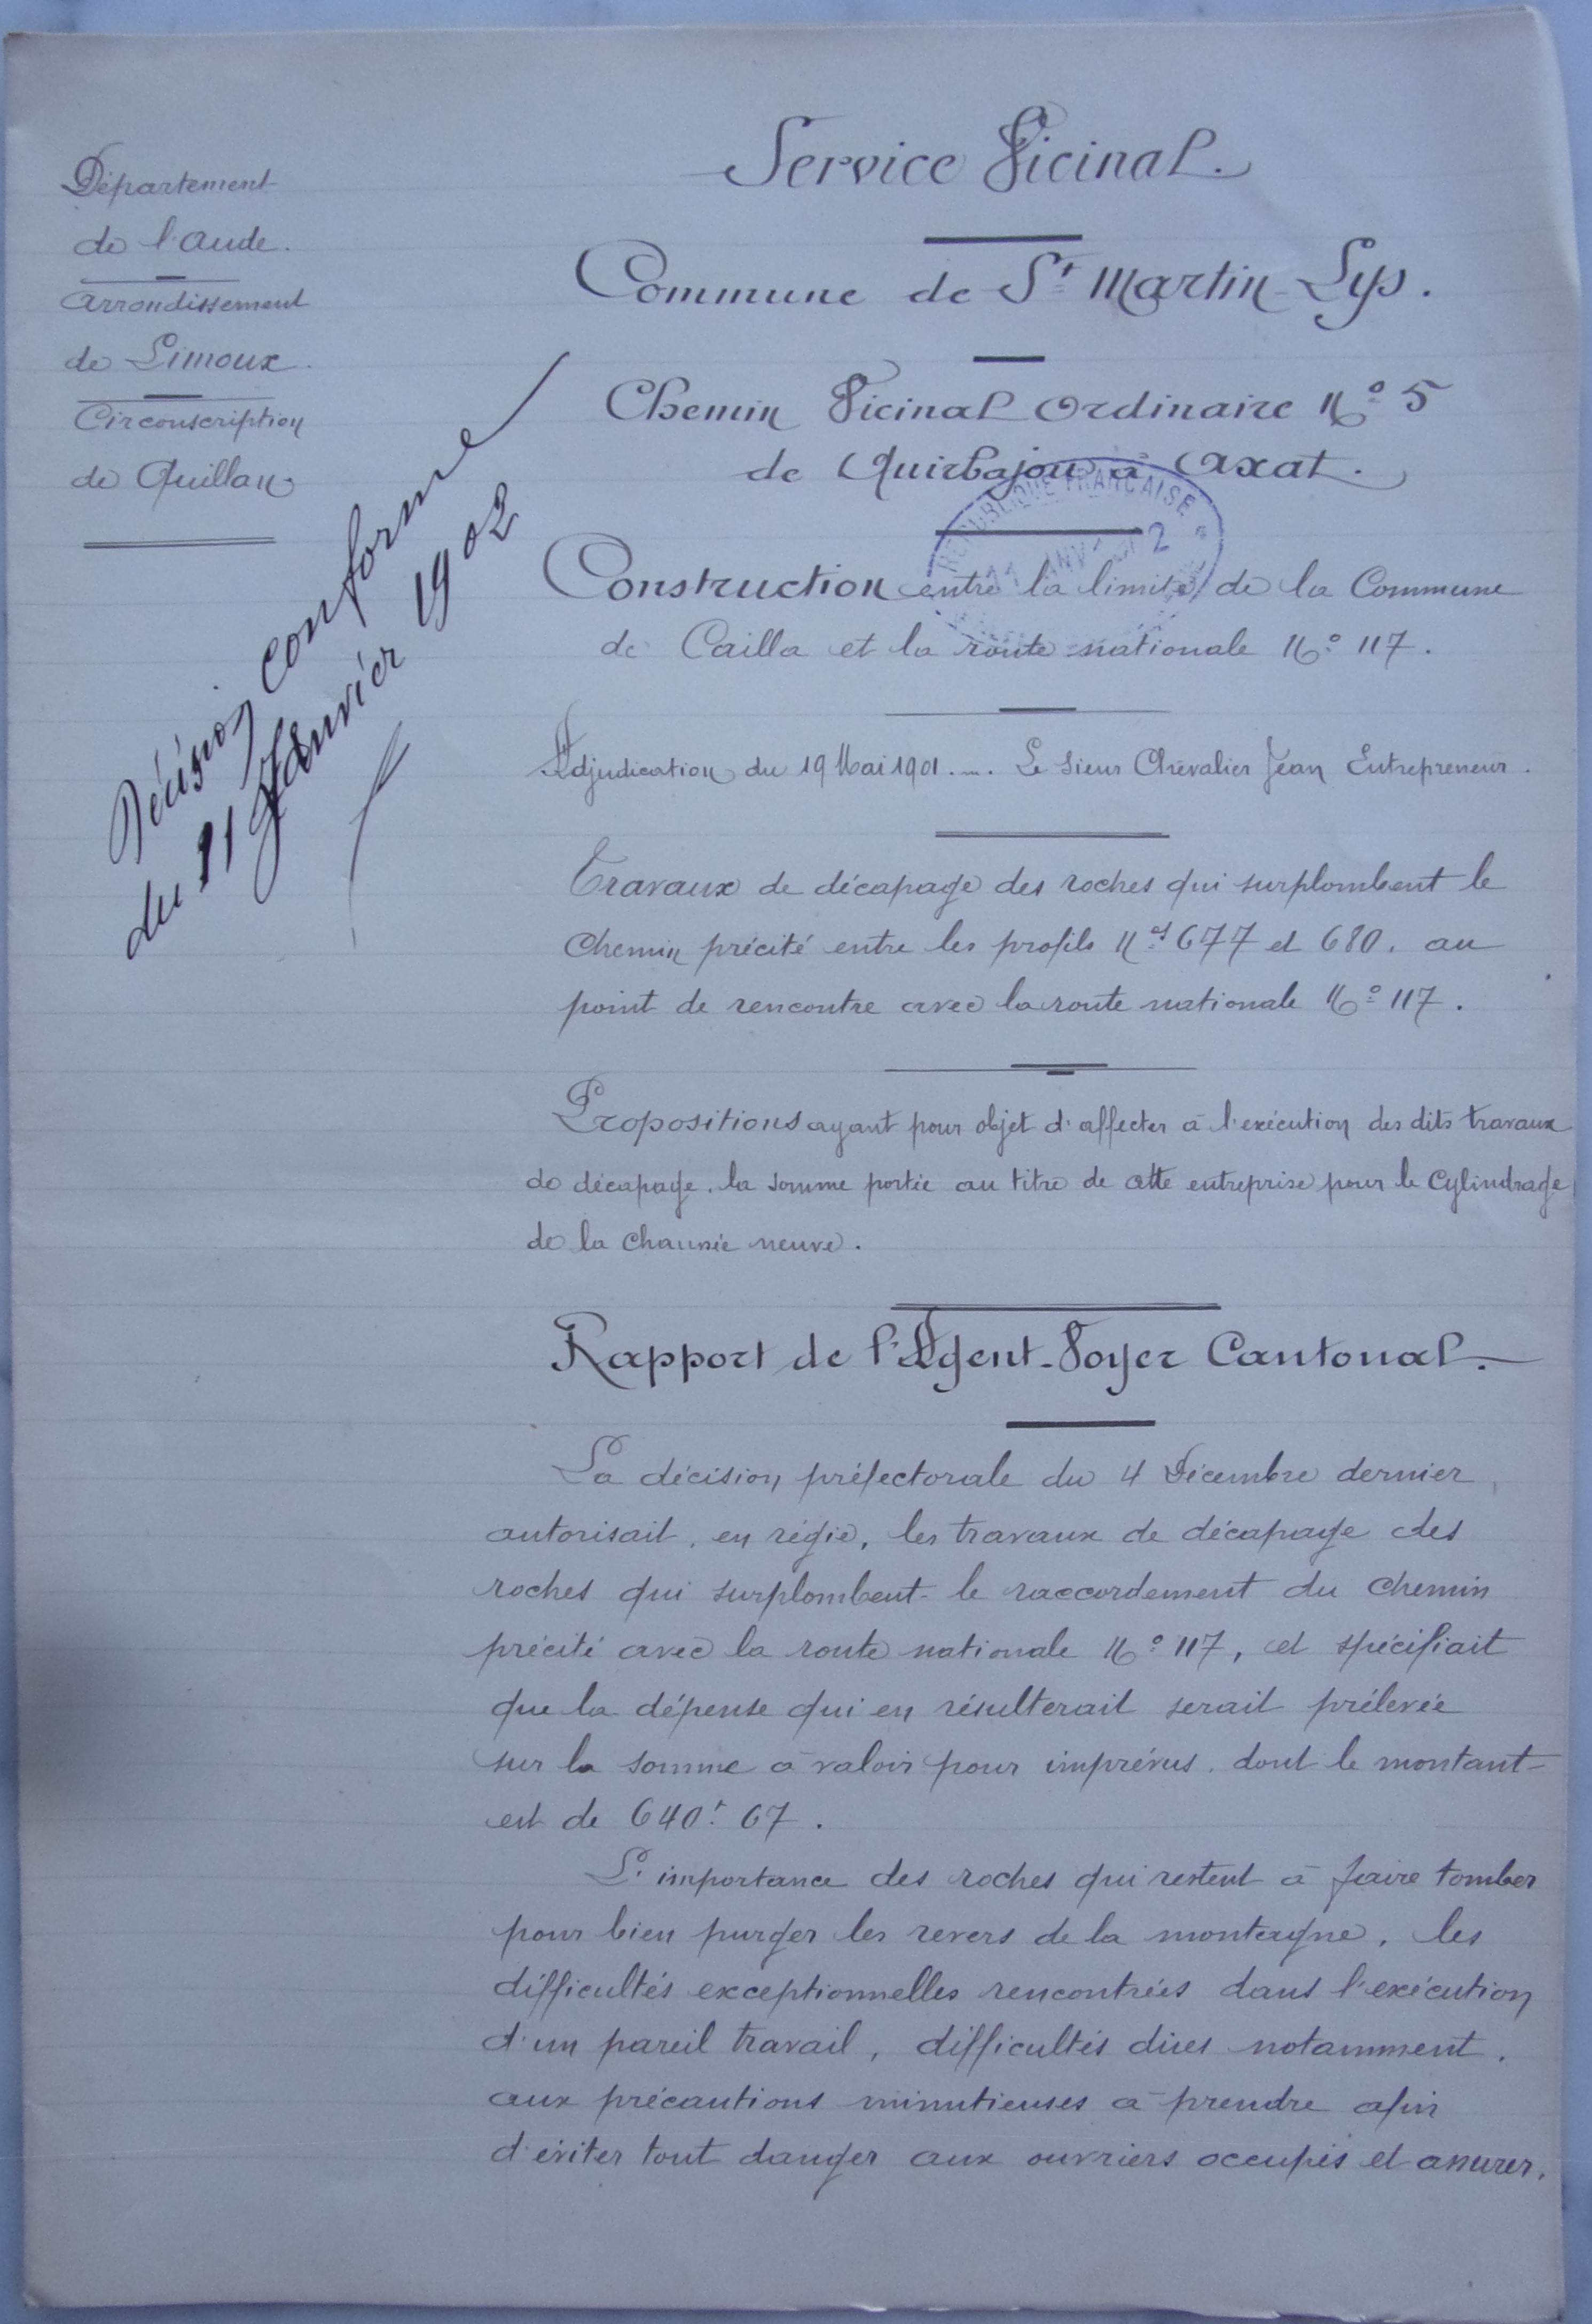 Département
de l'Aude.
Arrondissement
de Limoux.
Circonscription
de Quillan
Décision conforme
du 11 Janvier 1902
Service Vicinal.
Commune de St Martin-Lys.
Chemin Vicinal Ordinaire No 5
de Quirbajou à Axat.
RÉPUBLIQUE FRANÇAISE
11 JANV 2
Construction entre la limite de la Commune
de Cailla et la route nationale No 117.
Adjudication du 19 Mai 1901. — Le Sieur Chevalier Jean Entrepreneur.
Travaux de décapage des roches qui surplombent le
Chemin précité entre les profils Nos 677 et 680, au
point de rencontre avec la route nationale No 117.
Propositions ayant pour objet d'affecter à l'exécution des dits travaux
de décapage, la somme portée au titre de cette entreprise pour le Cylindrage
de la chaussée neuve.
Rapport de l'Agent-Voyer Cantonal.
La décision préfectorale du 4 Décembre dernier,
autorisait, en régie, les travaux de décapage des
roches qui surplombent le raccordement du chemin
précité avec la route nationale No 117, et spécifiait
que la dépense qui en résulterait serait prélevée
sur la somme à valoir pour imprévus, dont le montant
est de 640f 67.
L'importance des roches qui restent à faire tomber
pour bien purger les revers de la montagne, les
difficultés exceptionnelles rencontrées dans l'exécution
d'un pareil travail, difficultés dues notamment,
aux précautions minutieuses à prendre afin
d'éviter tout danger aux ouvriers occupés et assurer,